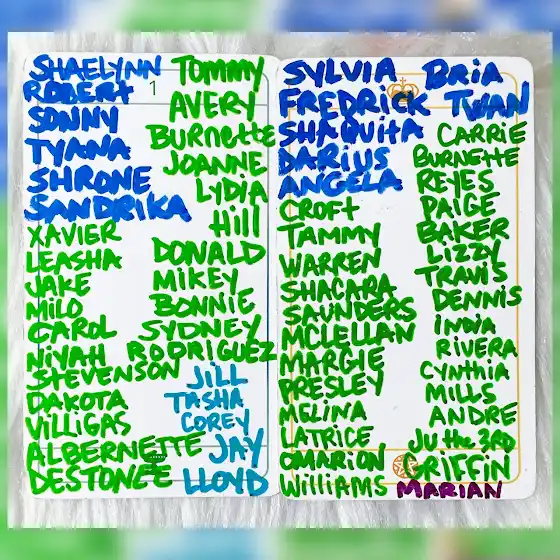 SHAELYNN TOMMY
ROBERT 1
SONNY AVERY
TYANA BURNETTE
SHRONE JOANNE
SANDRIKA LYDIA
XAVIER Hill
LEASHA DONALD
JAKE MIKEY
MILO BONNIE
CAROL SYDNEY
NIYAH RODRIGUEZ
STEVENSON JILL
DAKOTA TASHA
VILLIGAS COREY
ALBERNETTE JAY
DESTONEE LLOYD
SYLVIA BRIA
FREDRICK TWAN
SHAQUITA CARRIE
DARIUS BURNETTE
ANGELA REYES
CROFT PAIGE
TAMMY BAKER
WARREN LIZZY
SHACARA TRAVIS
SAUNDERS DENNIS
MCLELLAN INDIA
MARGIE RIVERA
PRESLEY CYNTHIA
MELINA MILLS
LATRICE ANDRE
OMARION JU the 3RD
WILLIAMS GRIFFIN
MARIAN